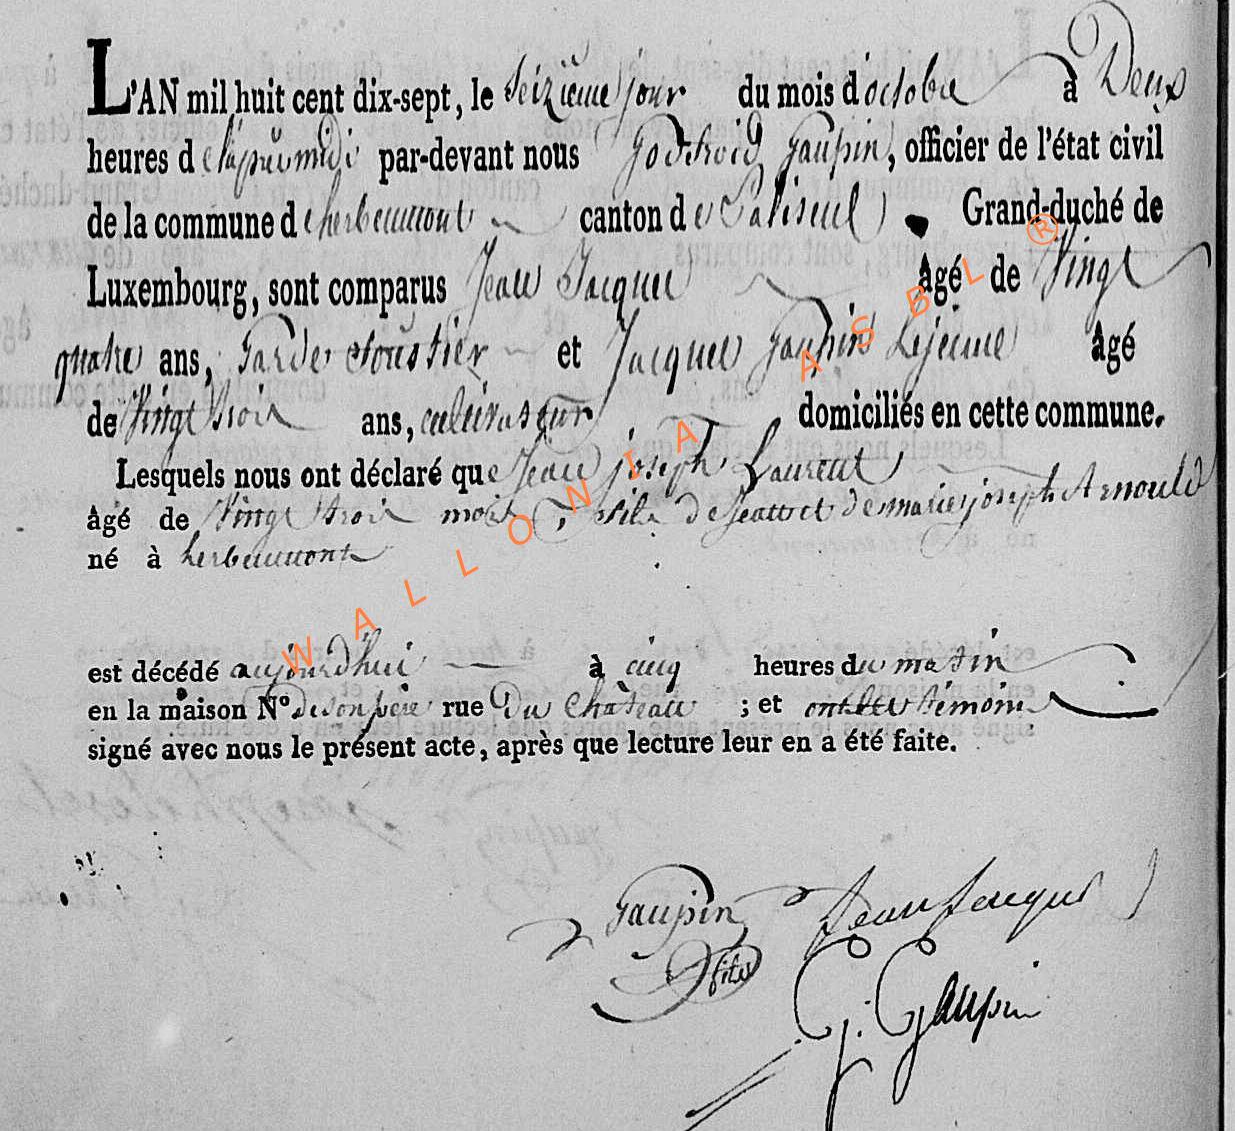 L'AN mil huit cent dix-sept, le seizieme jour du mois d'octobre à Deux
heures de l'après midi par-devant nous Godfroid Gaupin, officier de l'état civil
de la commune d'herbeumont canton de Paliseul Grand-duché de
Luxembourg, sont comparus Jean Jacques âgé de Vingt
quatre ans, Garde et Jacques Gaupin Lejeune âgé
de Vingt trois ans, cultivateur domiciliés en cette commune.
Lesquels nous ont déclaré que Jean joseph Laurent
âgé de Vingt trois mois, fils de Jean et de marie joseph Arnould
né à herbeumont
est décédé aujourdhui à cinq heures du matin
en la maison N° de son père rue Du Château ; et ont les témoins
signé avec nous le présent acte, après que lecture leur en a été faite.
Gaupin Jean Jacques
fils
G. Gaupin
WALLONIA ASBL ®